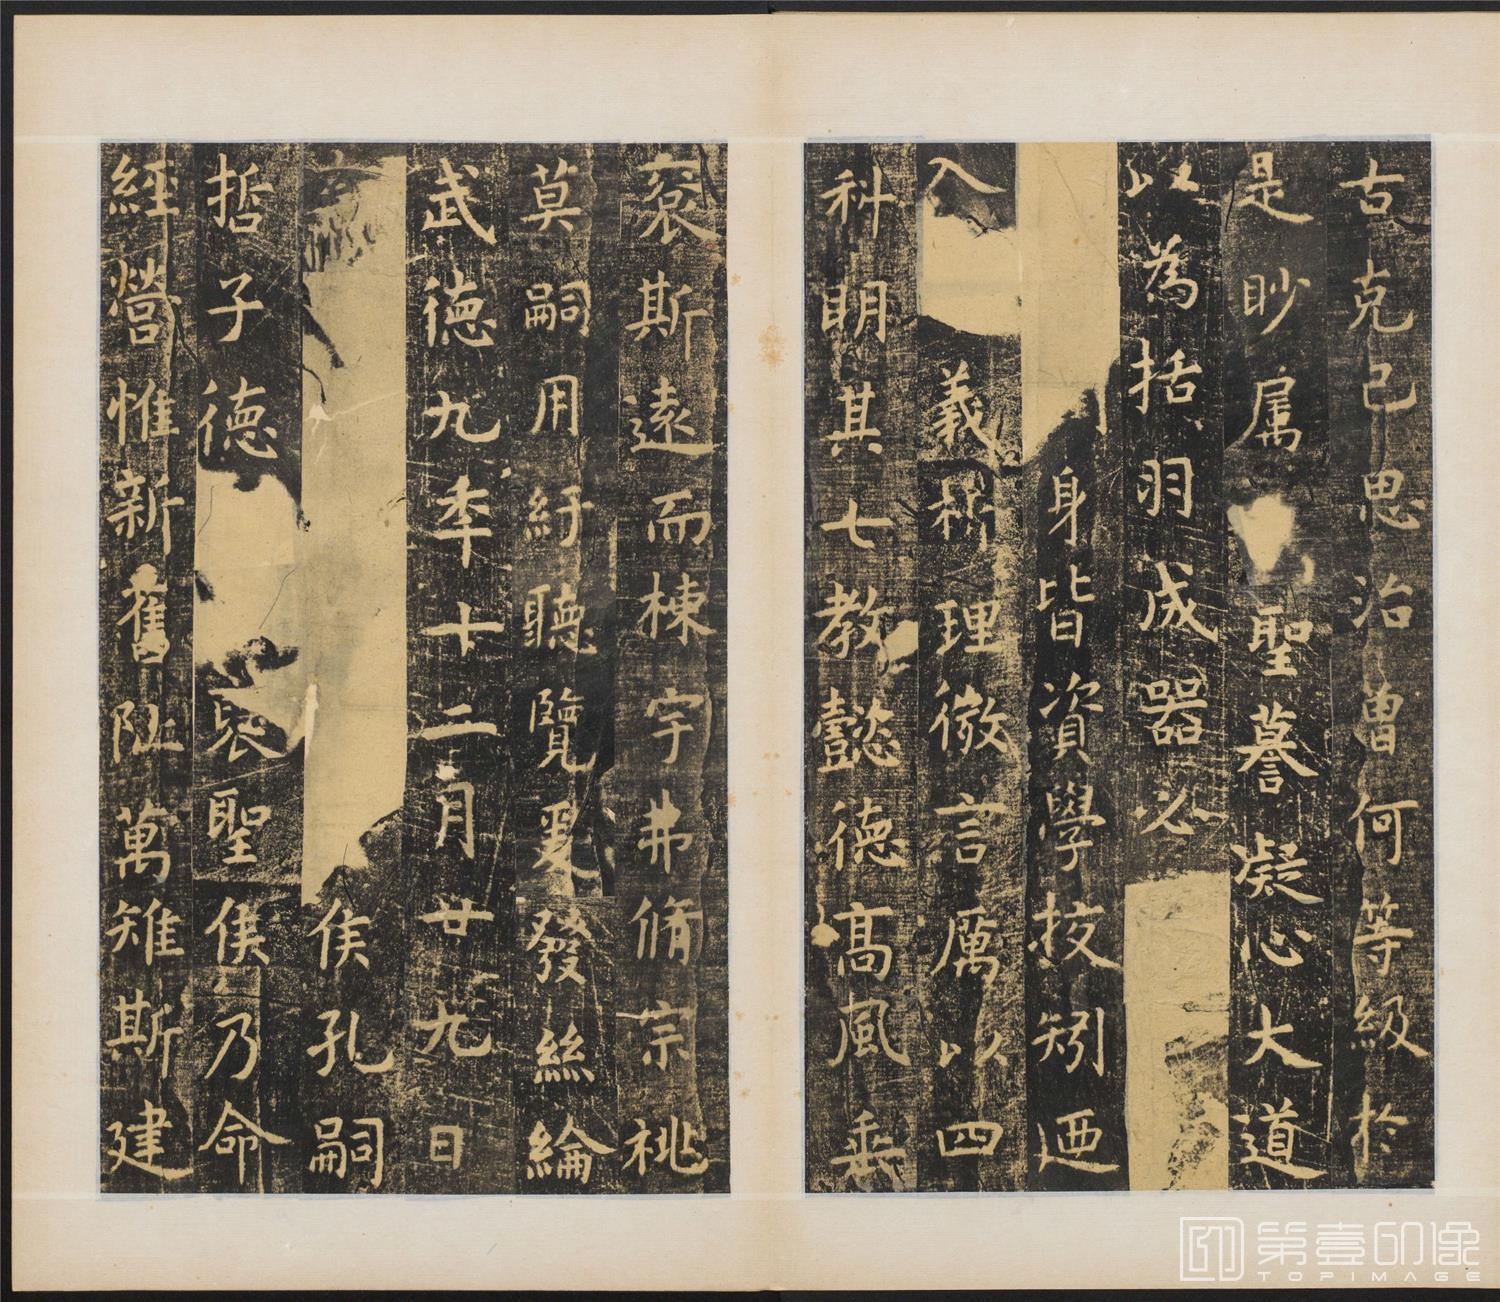 古克己思治曾何等級於
是眇属聖暮凝心大道
以為括羽成器必
身皆資學挍矧迺
入義枎理微言厲以四
科明其七教懿德高風垂
裒斯遠而棟宇弗脩宗祧
莫嗣用紆聽覽爰發絲綸
武德九年十二月廿九日
侯孔嗣
哲子德裒聖侯乃命
經營惟新舊阯萬雉斯建
第壹印像
TOPIMAGE